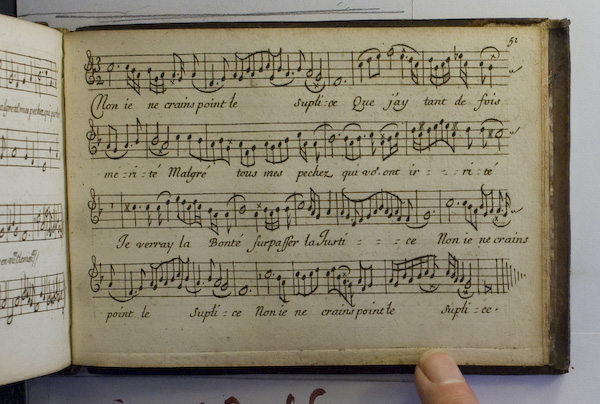 51
Non ie ne crains point le supli=ce Que j'ay tant de fois
me=ri=té Malgré tous mes pechez qui vo.ont ir===ri=té
Je verray la Bonté surpasser la Justi===ce Non ie ne crains
point le supli=ce Non ie ne crains point le supli=ce.